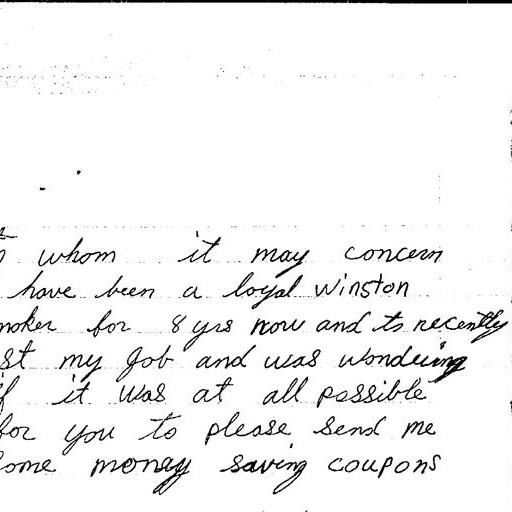 whom it may concern
have been a loyal Winston
moker for 8 yrs now and ts recently
st my Job and was wondering
if it was at all possible
for you to please send me
some money saving coupons